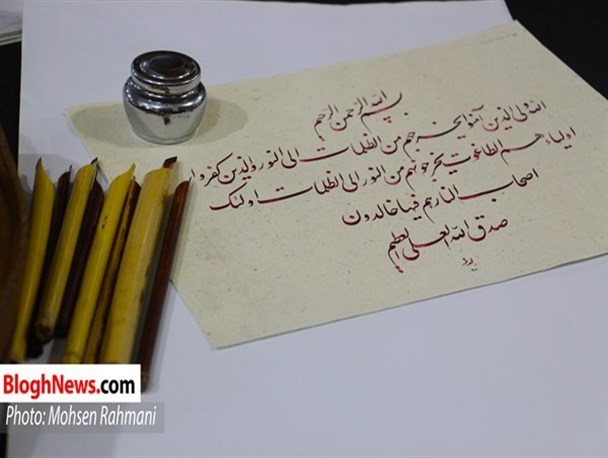 بسم الله الرحمن الرحیم
الله ولی الذین آمنوا یخرجهم من الظلمات الی النور والذین کفروا
اولیاءهم الطاغوت یخرجونهم من النور الی الظلمات اولئک
اصحاب النار هم فیها خالدون
صدق الله العلی العظیم
BloghNews.com
Photo: Mohsen Rahmani